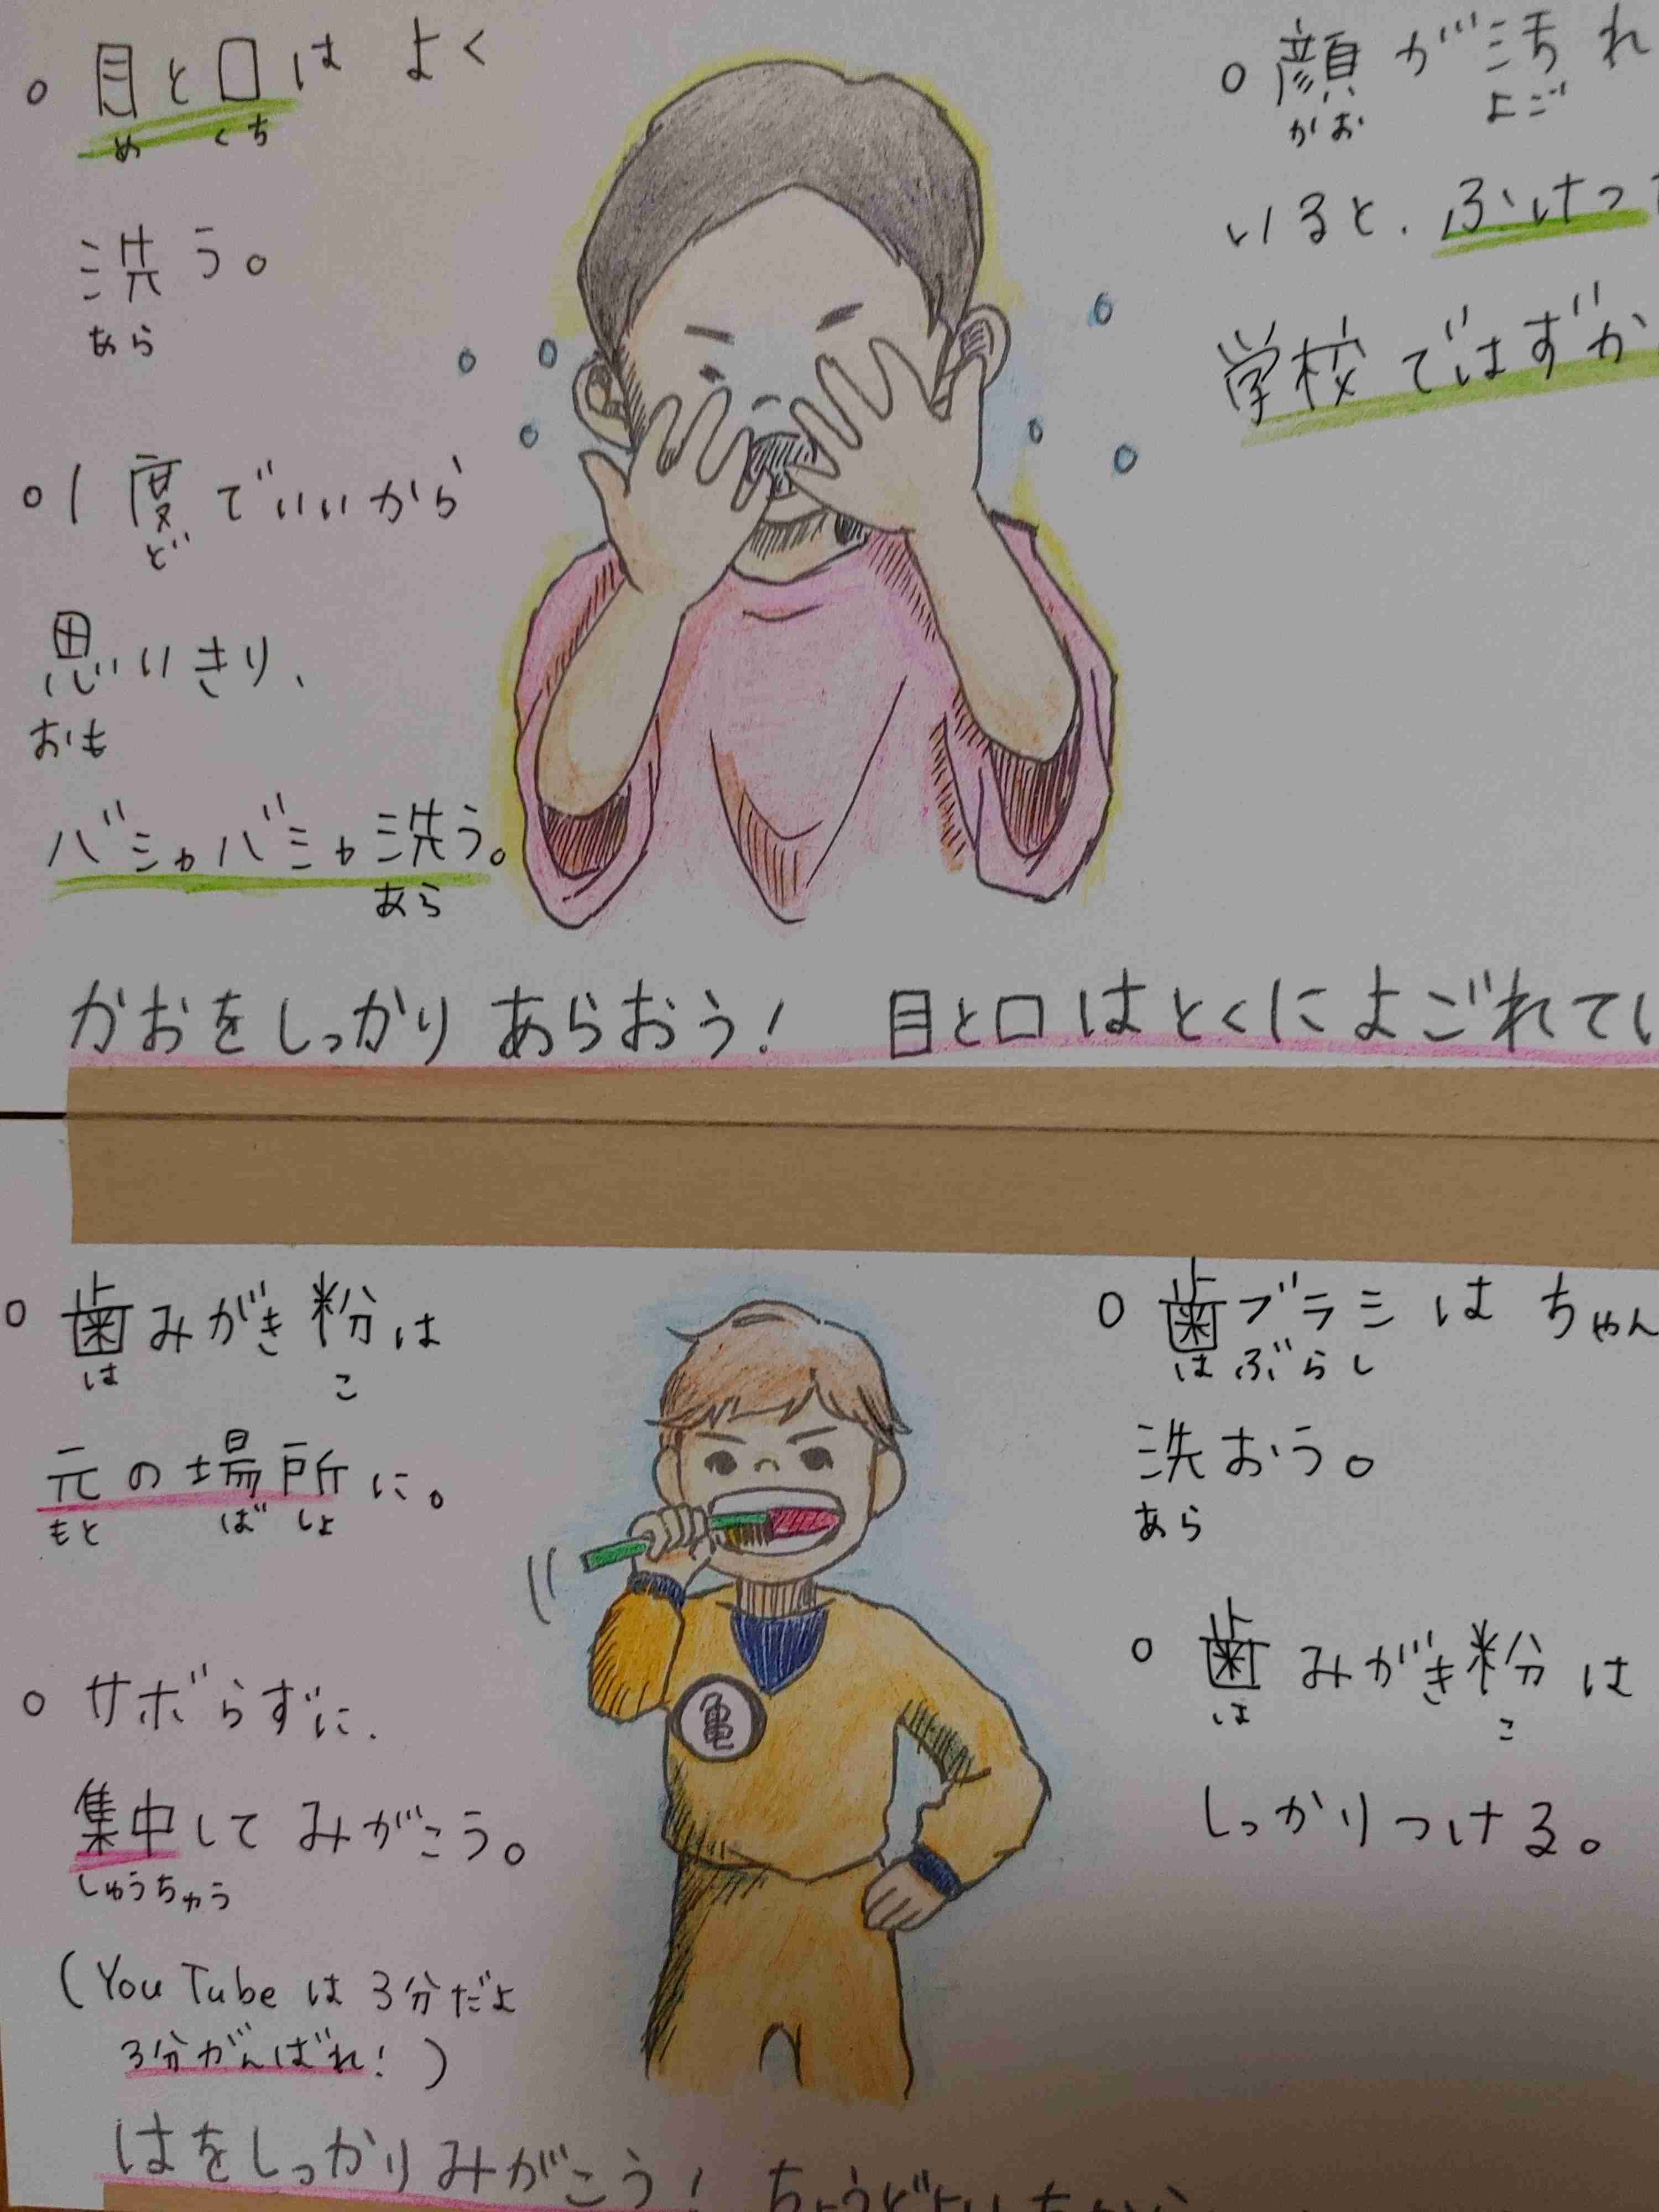 ○目と口はよく
め くち
洗う。
あら
○1度でいいから
ど
思いきり、
おも
バシャバシャ洗う。
あら
○顔が汚れ
かお よご
いると、ふけつ
学校ではずか
かおをしっかりあらおう! 目と口はとくによごれてい
○歯みがき粉は
は こ
元の場所に。
もと ばしょ
○サボらずに、
集中してみがこう。
しゅうちゅう
(YouTubeは3分だよ
3分がんばれ!)
亀
○歯ブラシはちゃん
はぶらし
洗おう。
あら
○歯みがき粉は
は こ
しっかりつける。
はをしっかりみがこう!